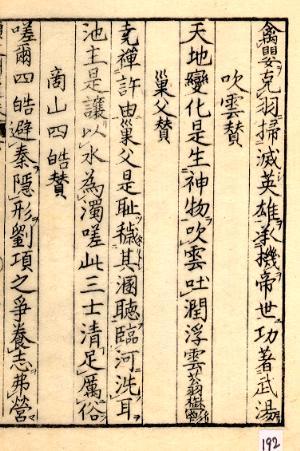 禽嬰克羽掃滅英雄承機帝世功著武湯
吹雲贊
天地變化是生神物吹雲吐潤浮雲蓊鬱
巢父贊
堯禪許由巢父是恥穢其溷聽臨河洗耳
池主是讓以水為濁嗟此三士清足厲俗
商山四皓贊
嗟爾四皓避秦隱形劉項之爭養志弗營
192